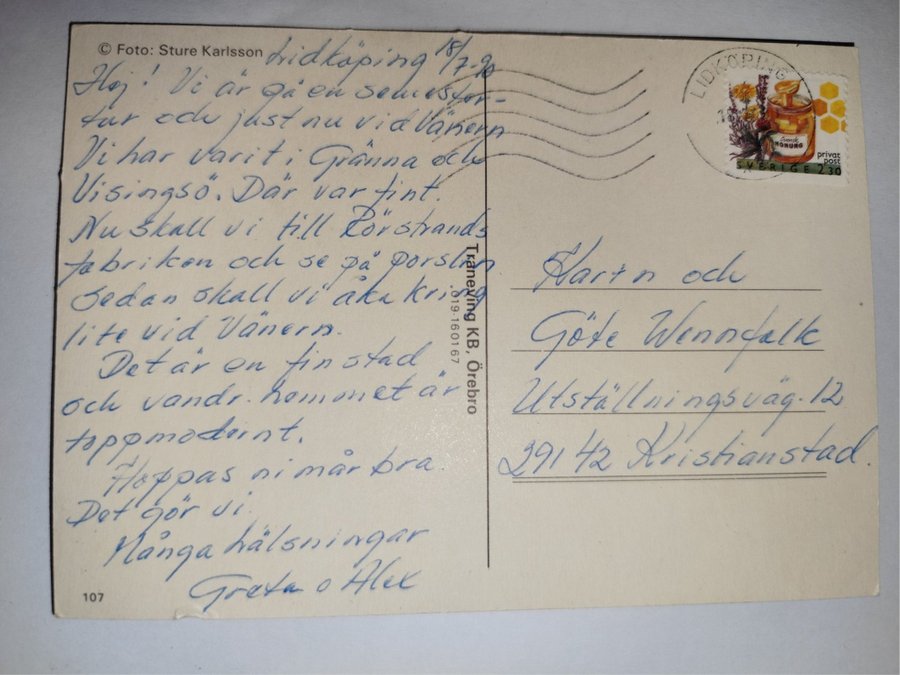 © Foto: Sture Karlsson
Lidköping 18/7-90
Hej! Vi är på en semester-
tur och just nu vid Vänern
Vi har varit i Gränna och
Visingsö. Där var fint.
Nu skall vi till Rörstrands
fabriken och se på porslin
Sedan skall vi åka kring
lite vid Vänern.
Det är en fin stad
och vandr. hemmet är
toppmodernt.
Hoppas ni mår bra.
Det gör vi.
Många hälsningar
Greta o Alex
107
Traneving KB, Örebro
019-16 01 67
LIDKÖPING
Svensk
HONUNG
privat
post
SVERIGE 2.30
Karin och
Göte Wennfalk
Utställningsväg. 12
291 42 Kristianstad.